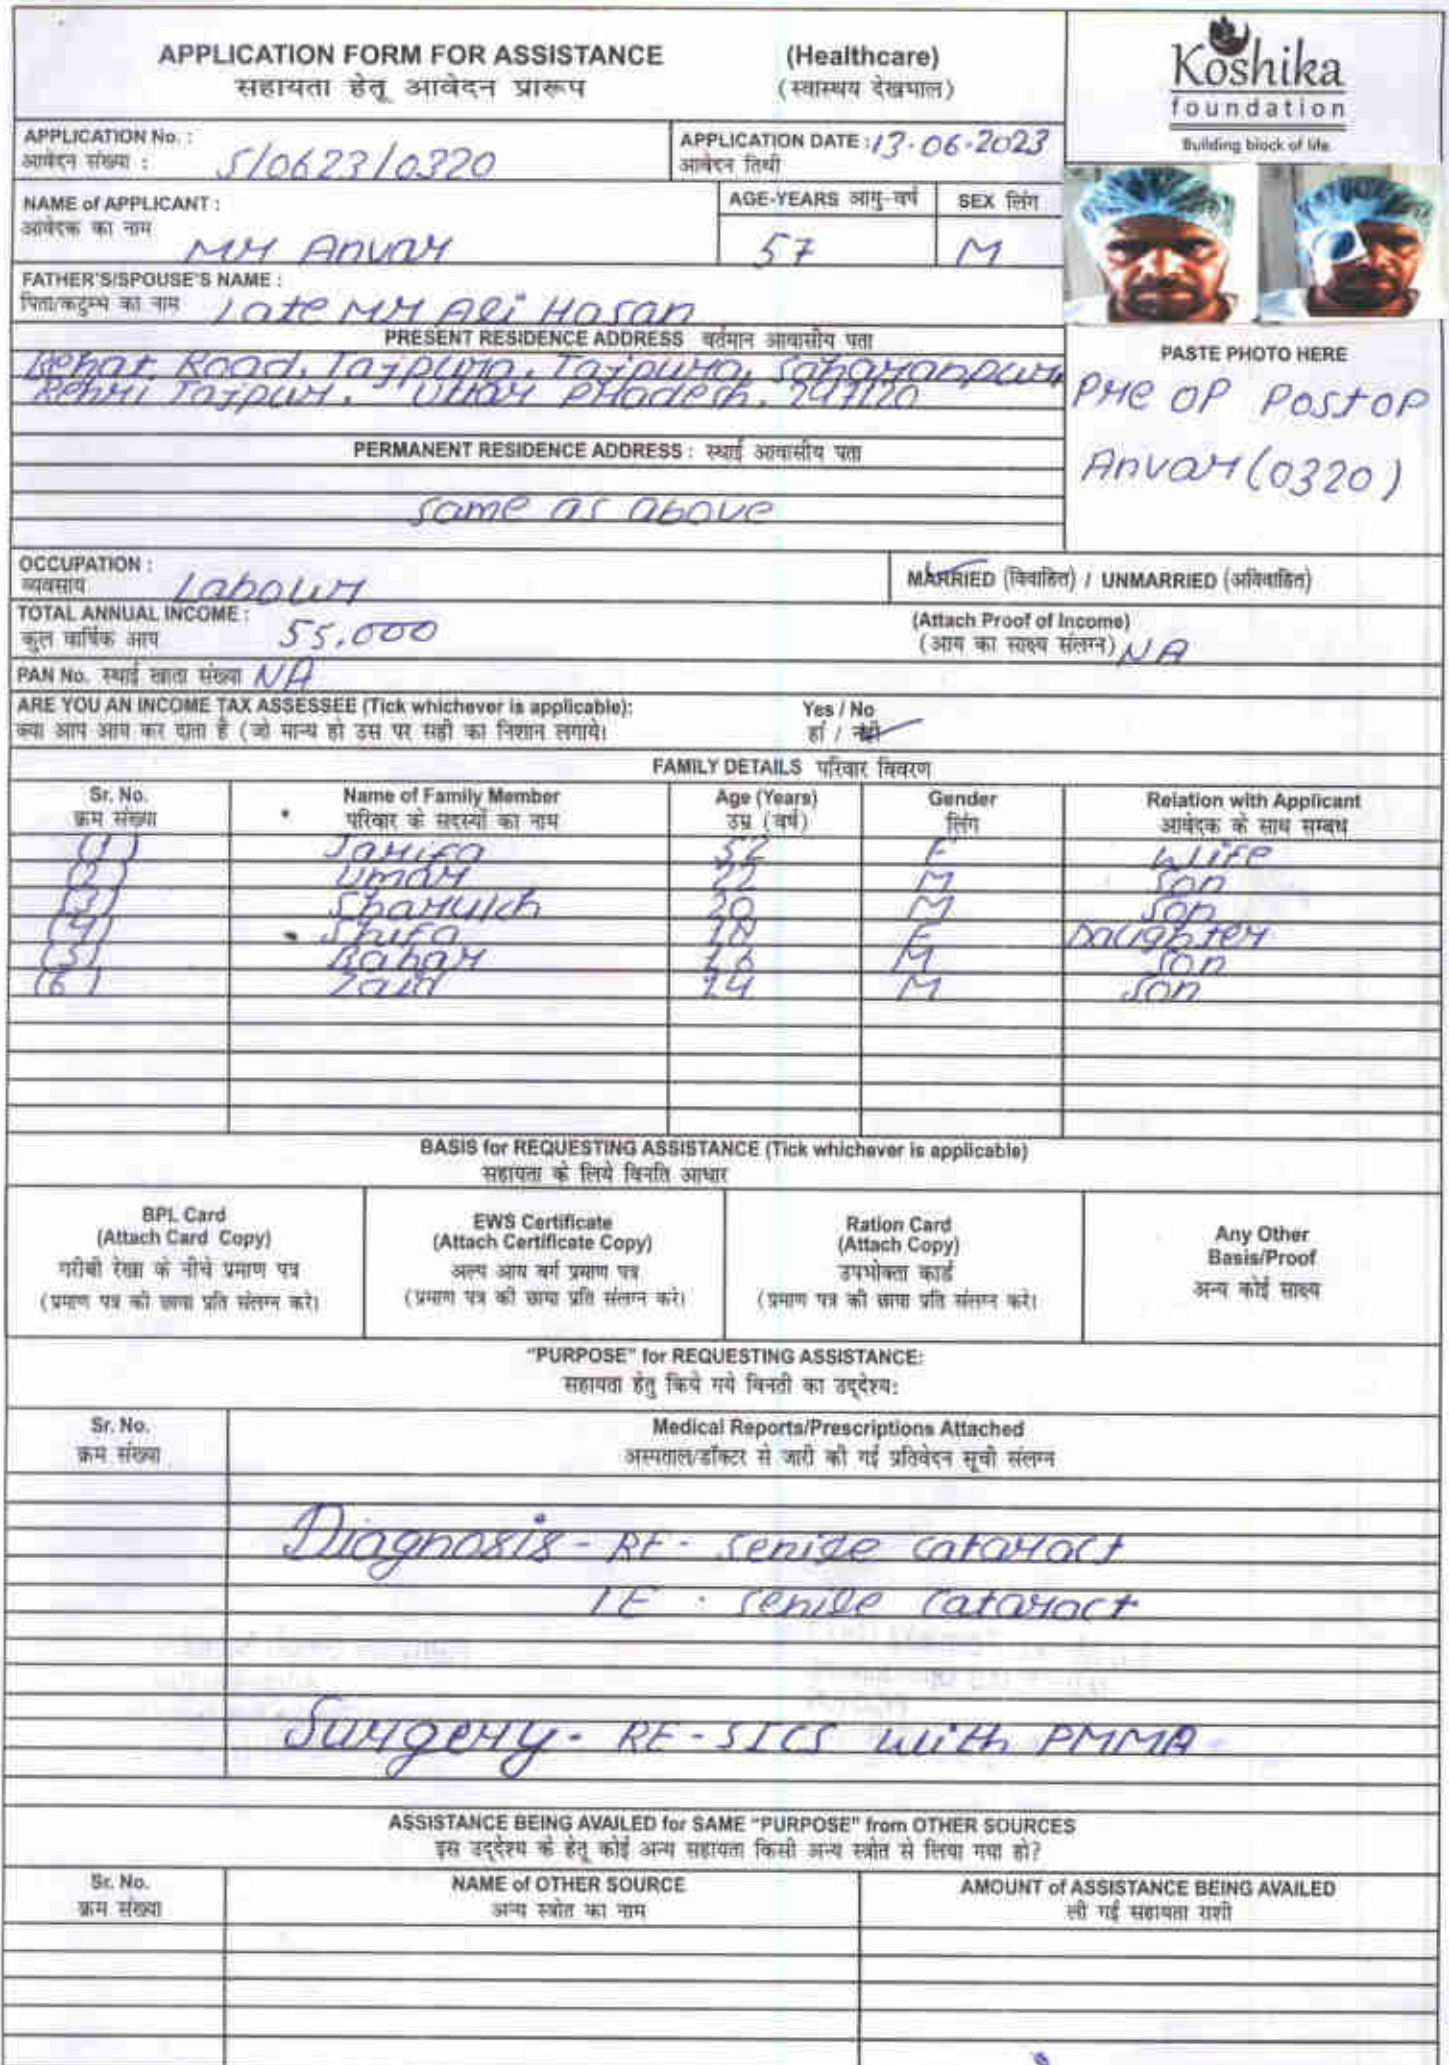 APPLICATION FORM FOR ASSISTANCE (Healthcare)
सहायता हेतू आवेदन प्रारूप (स्वास्थय देखभाल)
Koshika
foundation
Building block of life
APPLICATION No. :
आवेदन संख्या : S/0623/0320
APPLICATION DATE : 13-06-2023
आवेदन तिथी
NAME of APPLICANT :
आवेदक का नाम Mr Anvar
AGE-YEARS आयु-वर्ष 57
SEX लिंग M
FATHER'S/SPOUSE'S NAME :
पिता/कटुम्भ का नाम Late Mr Ali Hasan
PRESENT RESIDENCE ADDRESS वर्तमान आवासीय पता
Behat Road, Tajpura, Tajpura, Saharanpur
Rehri Tajpur, Uttar Pradesh, 247120
PASTE PHOTO HERE
Pre OP Post OP
Anvar (0320)
PERMANENT RESIDENCE ADDRESS : स्थाई आवासीय पता
same as above
OCCUPATION :
व्यवसाय Labour
MARRIED (विवाहित) / UNMARRIED (अविवाहित)
TOTAL ANNUAL INCOME :
कुल वार्षिक आय 55,000
(Attach Proof of Income)
(आय का साक्ष्य संलग्न) NA
PAN No. स्थाई खाता संख्या NA
ARE YOU AN INCOME TAX ASSESSEE (Tick whichever is applicable): Yes / No
क्या आप आय कर दाता है (जो मान्य हो उस पर सही का निशान लगाये। हां / नही
FAMILY DETAILS परिवार विवरण
Sr. No. Name of Family Member Age (Years) Gender Relation with Applicant
क्रम संख्या परिवार के सदस्यों का नाम उम्र (वर्ष) लिंग आवेदक के साथ सम्बध
(1) Jarifa 52 F Wife
(2) Umar 22 M Son
(3) Sharukh 20 M Son
(4) Shifa 18 F Daughter
(5) Babar 16 M Son
(6) Zaid 14 M Son
BASIS for REQUESTING ASSISTANCE (Tick whichever is applicable)
सहायता के लिये विनति आधार
BPL Card
(Attach Card Copy)
गरीबी रेखा के नीचे प्रमाण पत्र
(प्रमाण पत्र की छाया प्रति संलग्न करे।
EWS Certificate
(Attach Certificate Copy)
अल्प आय वर्ग प्रमाण पत्र
(प्रमाण पत्र की छाया प्रति संलग्न करे।
Ration Card
(Attach Copy)
उपभोक्ता कार्ड
(प्रमाण पत्र की छाया प्रति संलग्न करे।
Any Other
Basis/Proof
अन्य कोई साक्ष्य
"PURPOSE" for REQUESTING ASSISTANCE:
सहायता हेतु किये गये विनती का उद्देश्य:
Sr. No. Medical Reports/Prescriptions Attached
क्रम संख्या अस्पताल/डॉक्टर से जारी की गई प्रतिवेदन सूची संलग्न
Diagnosis - RE - senile cataract
LE - senile cataract
Surgery - RE - SICS with PMMA
ASSISTANCE BEING AVAILED for SAME "PURPOSE" from OTHER SOURCES
इस उद्देश्य के हेतू कोई अन्य सहायता किसी अन्य स्त्रोत से लिया गया हो?
Sr. No. NAME of OTHER SOURCE AMOUNT of ASSISTANCE BEING AVAILED
क्रम संख्या अन्य स्त्रोत का नाम ली गई सहायता राशी